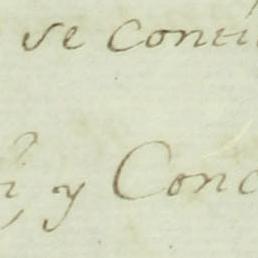 se conti
y Conc